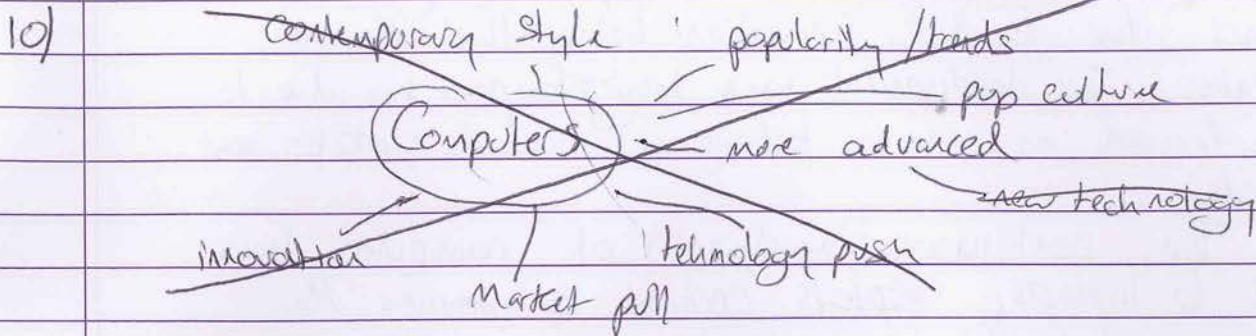 10) Contemporary Style popularity / trends
pop culture
Computers more advanced
new technology
innovation technology push
Market pull